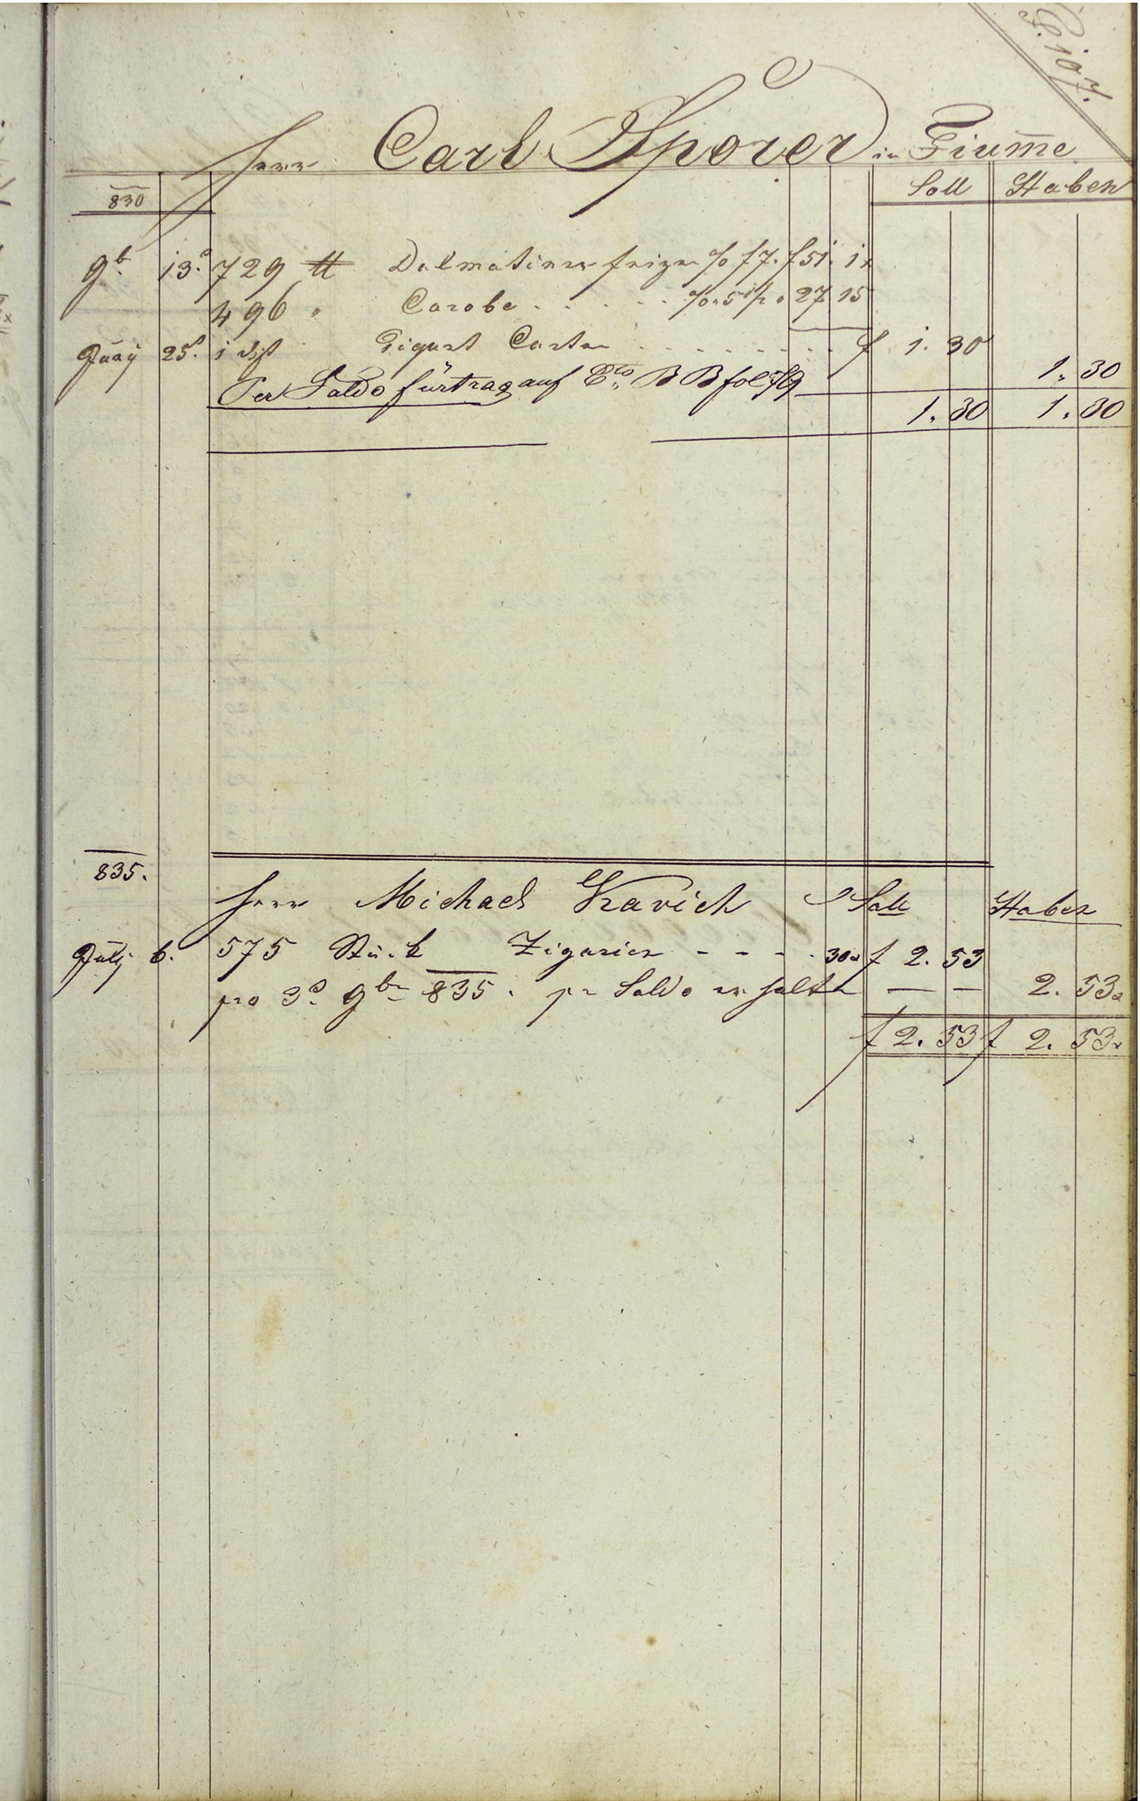 P. 107.
Herr Carl Sporer in Fiume
830 Soll Haben
9b. 13. 729 ℔ Dalmatiner feigen % f 7. f 51. 1x
496 " Carobe . . . . . % " 5½ " 27 15
25. 1 Carten . . . . . . . . f 1. 30
Per Saldo fürtrag auf Cto BB fol 79 1. 30
1. 30 1. 30
835.
Herr Michael Soll Haben
July 6. 575 Stück Zigarien - - - . 30x f 2. 53
pro 3. 9br 835. pr Saldo erhalten — — 2. 53x
f 2. 53 f 2. 53x